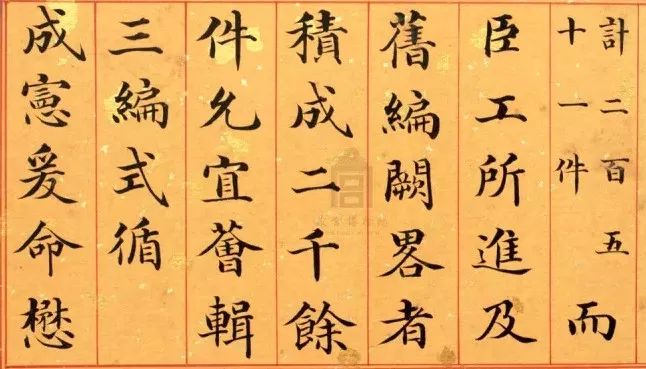 計二百五
十一件
而
臣工所進及
舊編闕畧者
積成二千餘
件允宜薈輯
三編式循
成憲爰命懋